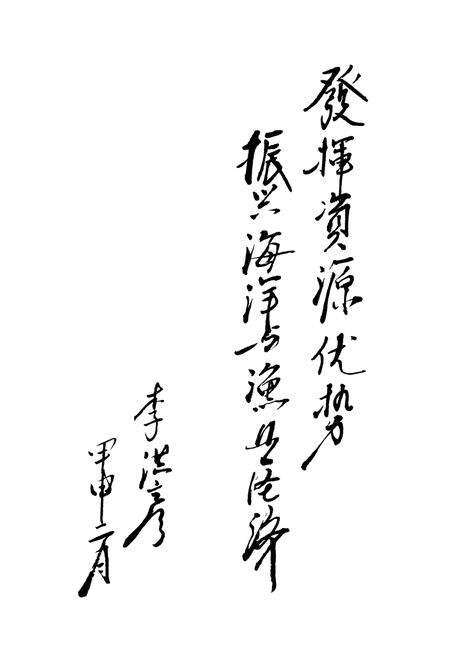 發揮資源优势
振兴海洋与渔业经济
李洪彦
甲申二月